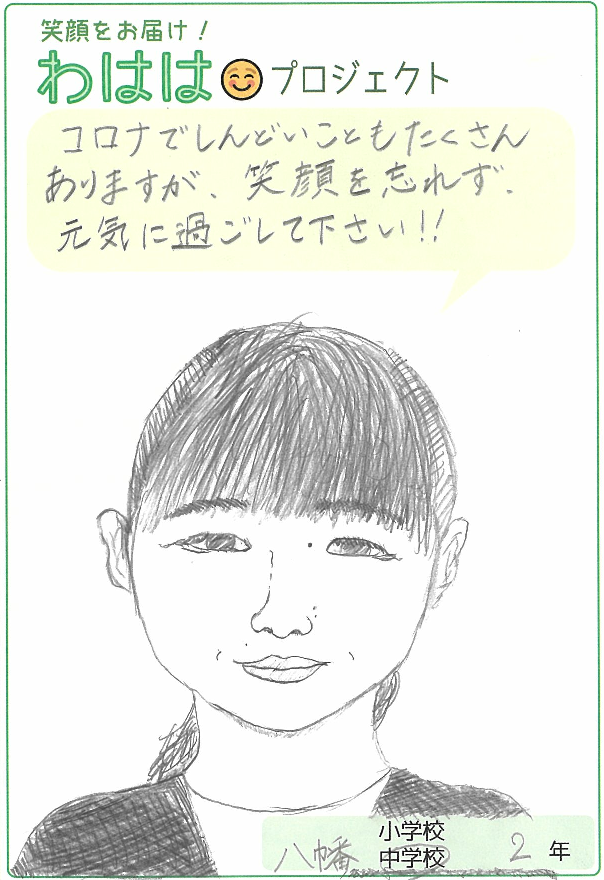 笑顔をお届け！
わはは プロジェクト
コロナでしんどいこともたくさん
ありますが、笑顔を忘れず、
元気に過ごして下さい!!
小学校
八幡 中学校 2年